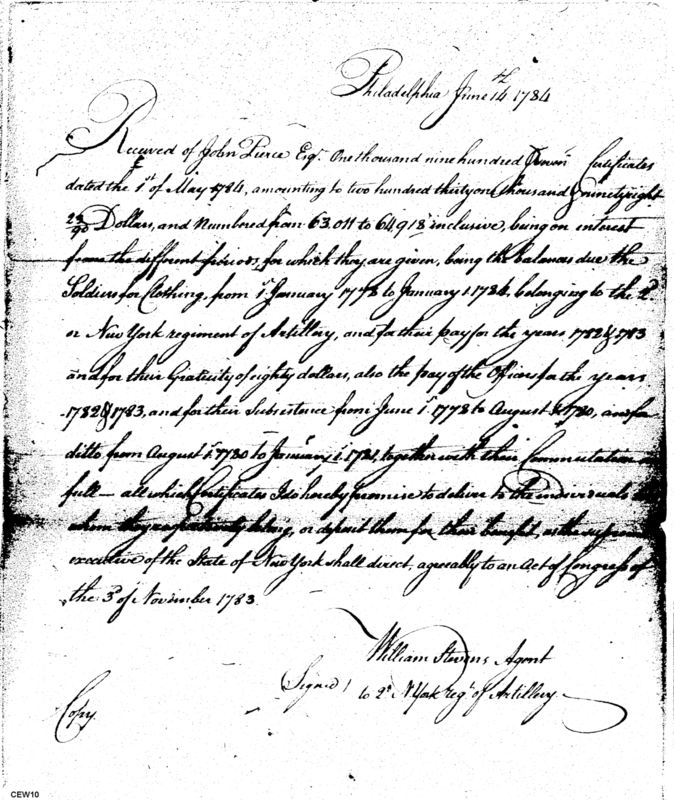 Philadelphia June 14th 1784
Received of John Pierce Esqr. One thousand nine hundred Certificates
dated the 1st of May 1784, amounting to two hundred thirty one thousand & ninety eight
23/90 Dollars, and Numbered from 63.011 to 64918 inclusive, being on interest
from the different periods, for which they are given, being the balances due the
Soldiers for Clothing, from 1st January 1778 to January 1. 1784, belonging to the 2d
or New York regiment of Artillery, and for their pay for the years 1782 & 1783
and for their Gratuity of eighty dollars, also the pay of the Officers for the years
1782 & 1783, and for their Subsistence from June 1st 1778 to August 1780, and for
ditto, from August 1st 1780 to January 1. together with their Commutation in
full — all which Certificates I do hereby promise to deliver to the individuals to
whom they respectively belong, or deposit them for their benefit, as the supreme
executive of the State of New York shall direct, agreeably to an Act of Congress of
the 3d of November 1783.
William Stevens Agent
Signed / to 2d N York regt of Artillery
Copy.
CEW10